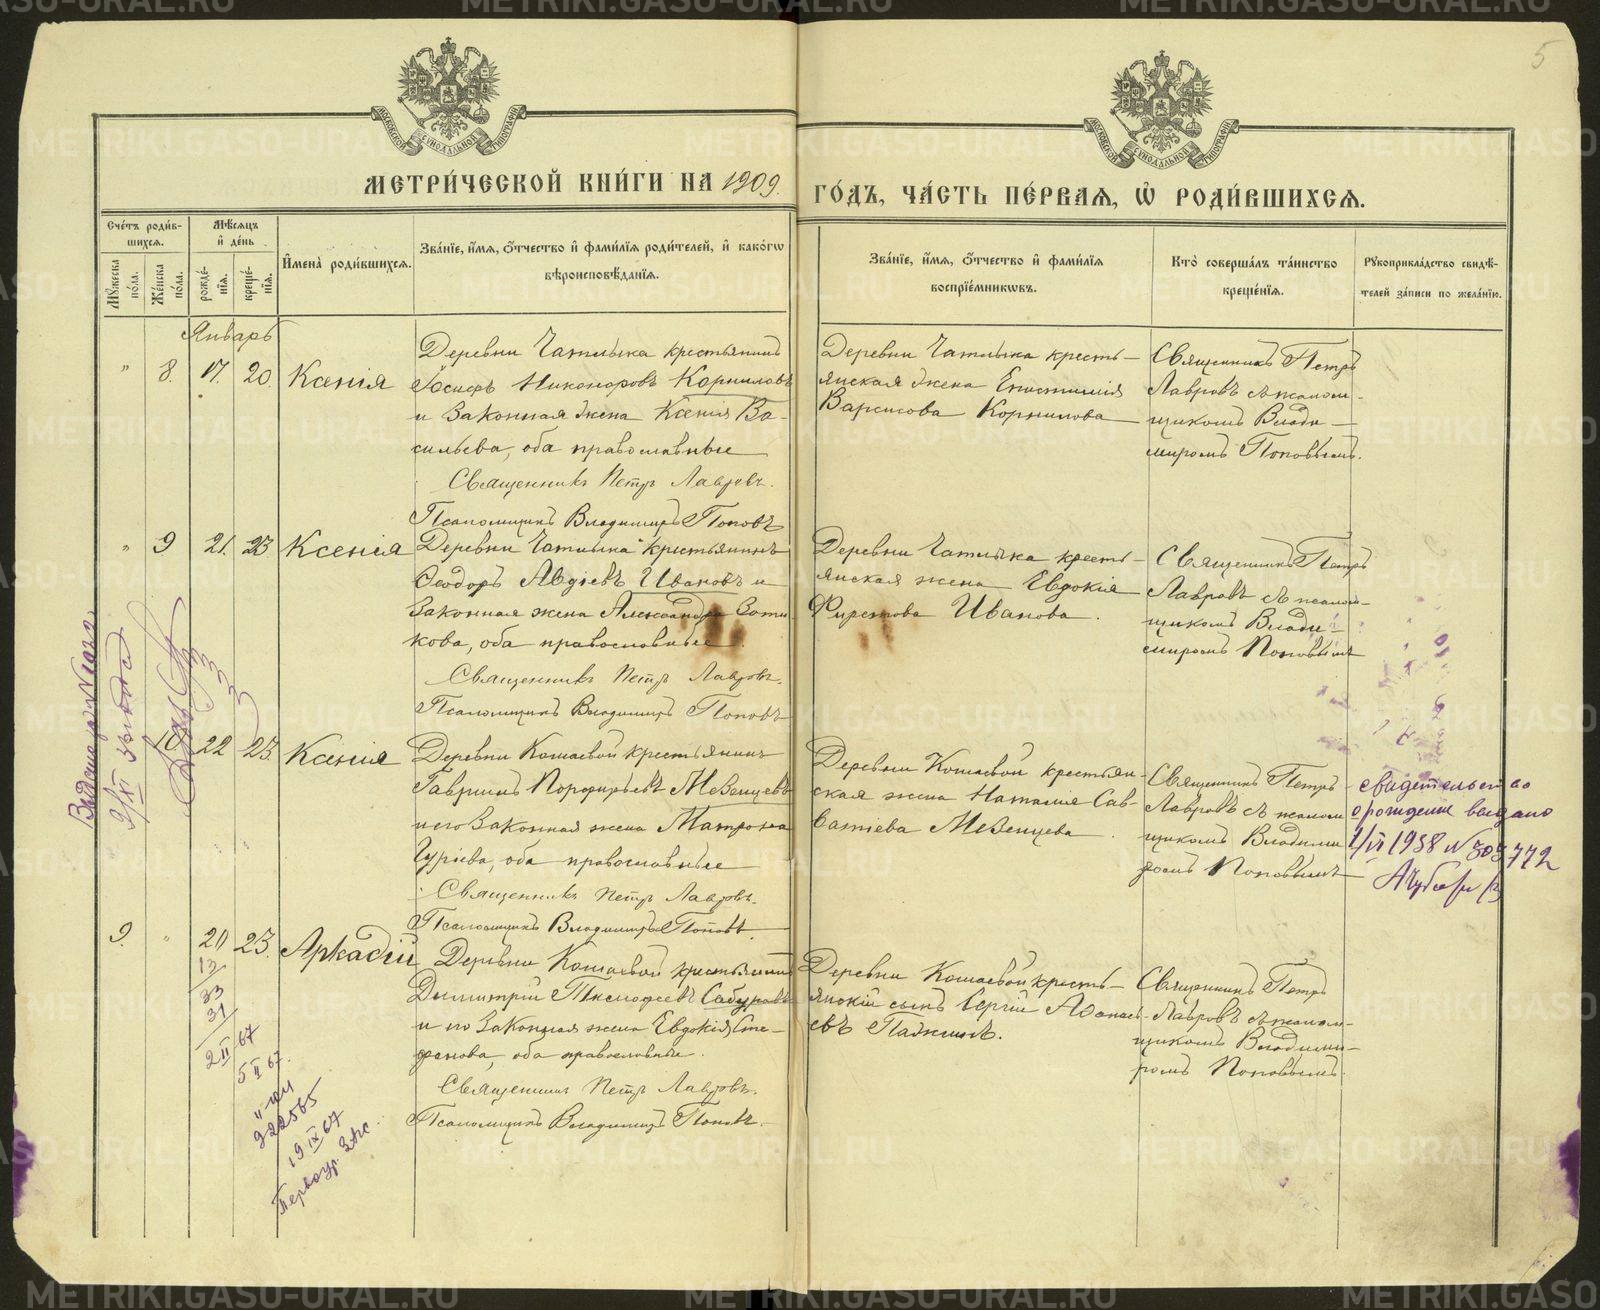 5
МОСКОВСКОЙ СѴНОДАЛЬНОЙ ТИПОГРАФІИ
МОСКОВСКОЙ СѴНОДАЛЬНОЙ ТИПОГРАФІИ
МЕТРИ́ЧЕСКОЙ КНИ́ГИ НА 1909.
ГО́ДЪ, ЧА́СТЬ ПЕ́РВАѦ, Ѽ РОДИ́ВШИХСѦ.
Сче́тъ роди́в-
шихсѧ.
Мѣ́сѧцъ
и҆ де́нь
Мꙋ́жеска
по́ла.
Же́нска
по́ла.
рожде́-
нїѧ.
креще́-
нїѧ.
И҆мена̀ роди́вшихсѧ.
Зва́нїе, и҆́мѧ, ѻ҆́тчество и҆ фами́лїѧ роди́телей, и҆ како́гѡ
вѣроисповѣ́данїѧ.
Зва́нїе, и҆́мѧ, ѻ҆́тчество и҆ фами́лїѧ
воспрїе́мникѡвъ.
Кто̀ соверша́лъ та́инство
креще́нїѧ.
Рꙋкоприкла́дство свидѣ́-
телей за́писи по жела́нїю.
Январь
" 8. 17. 20. Ксенія
Деревни Чатлыка крестьянинъ
Іосифъ Никоноровъ Корниловъ
и законная жена Ксенія Ва-
сильева, оба православные
Священникъ Петръ Лавровъ.
Псаломщикъ Владимиръ Поповъ
Деревни Чатлыка кресть-
янская жена Епистимія
Варсисова Корнилова
Священникъ Петръ
Лавровъ съ псалом-
щикомъ Влади-
миромъ Поповымъ.
" 9 21. 23 Ксенія
Деревни Чатлыка крестьянинъ
Ѳеодоръ Авдіевъ Ивановъ и
законная жена Александра Зоти
кова, оба православные.
Священникъ Петръ Лавровъ.
Псаломщикъ Владимиръ Поповъ
Деревни Чатлыка кресть-
янская жена Евдокія
Фирстова Иванова.
Священникъ Петръ
Лавровъ съ псалом-
щикомъ Влади-
миромъ Поповымъ
10 22 25. Ксенія
Деревни Кошаевой крестьянинъ
Гавриилъ Порфирьевъ Мезенцевъ
и его законная жена Матрона
Гуріева, оба православные
Священникъ Петръ Лавровъ.
Псаломщикъ Владимиръ Поповъ
Деревни Кошаевой крестьян-
ская жена Наталія Сав-
ватіева Мезенцева
Священникъ Петръ
Лавровъ съ псалом
щикомъ Владими
ромъ Поповымъ
свидетельство
о рождении выдано
1958 N 303772
9. " 20 23. Аркадій
Деревни Кошаевой крестьянинъ
Димитрій Тимофеевъ Сабуровъ
и его законная жена Евдокія Сте-
фанова, оба православные.
Священникъ Петръ Лавровъ.
Псаломщикъ Владимиръ Поповъ.
Деревни Кошаевой кресть-
янскій сынъ Сергій Аѳанась-
евъ Палкинъ.
Священникъ Петръ
Лавровъ съ псалом-
щикомъ Владими-
ромъ Поповымъ.
13
33
31
2 II 67
5 II 67.
922565
19 IX 67
Первоур. Загс.
METRIKI.GASO-URAL.RU